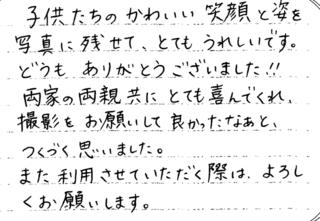 子供たちのかわいい笑顔と姿を
写真に残せて、とてもうれしいです。
どうも ありがとうございました!!
両家の両親共に とても喜んでくれ、
撮影を お願いして 良かったなあと、
つくづく 思いました。
また 利用させていただく際は、よろし
くお願いします。